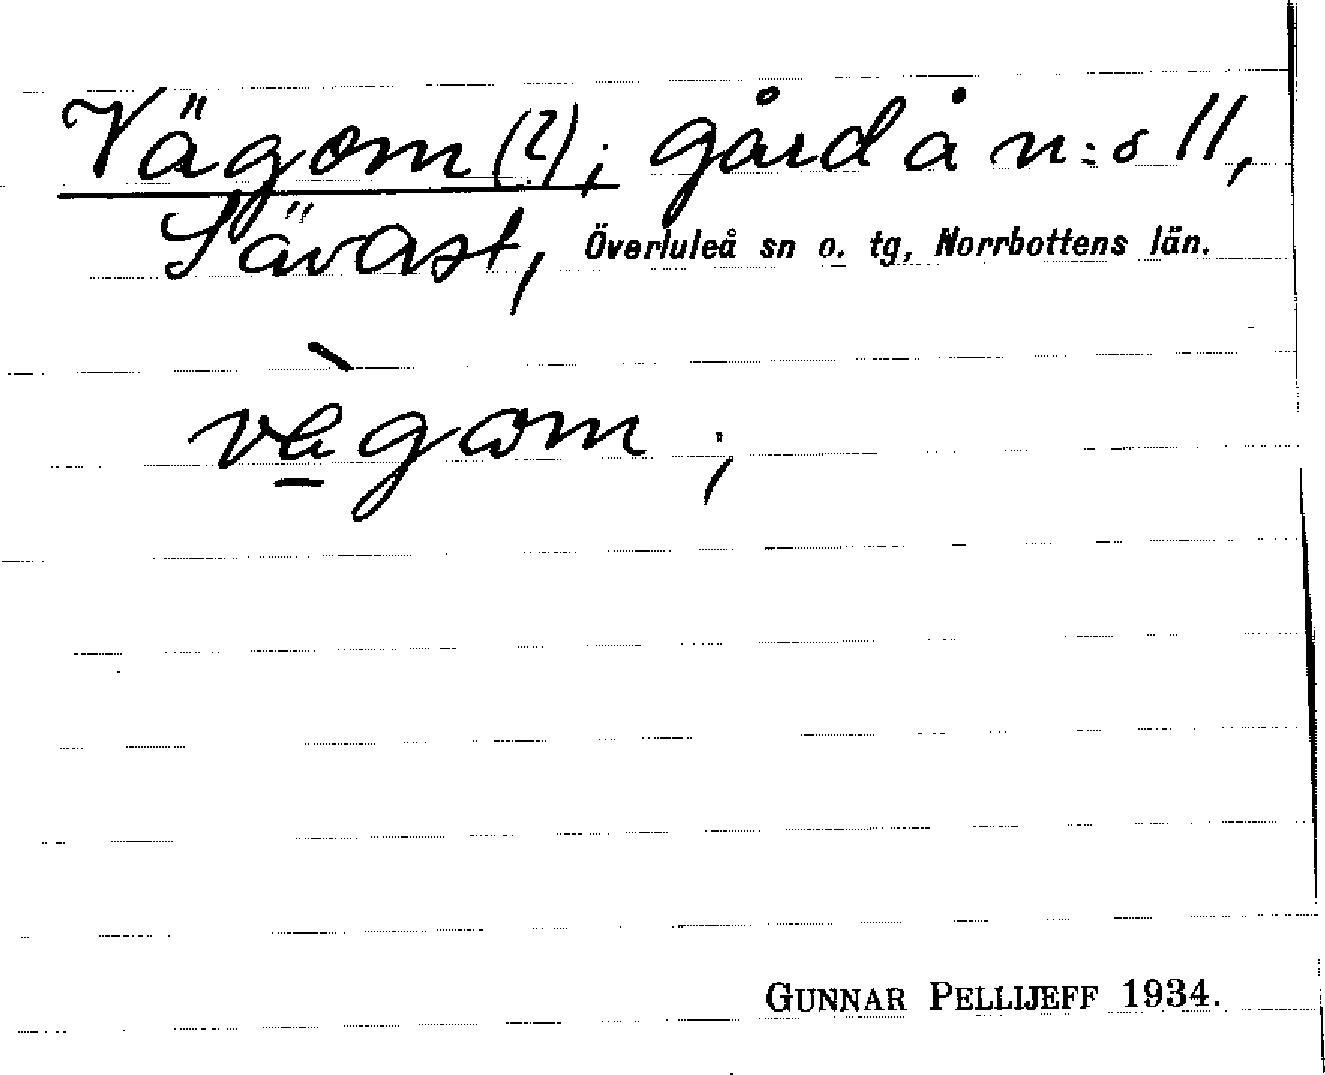 Vägom (?); gård å n:o 11,
Sävast, Överluleå sn o. tg, Norrbottens län.
vægωm ;
GUNNAR PELLIJEFF 1934.